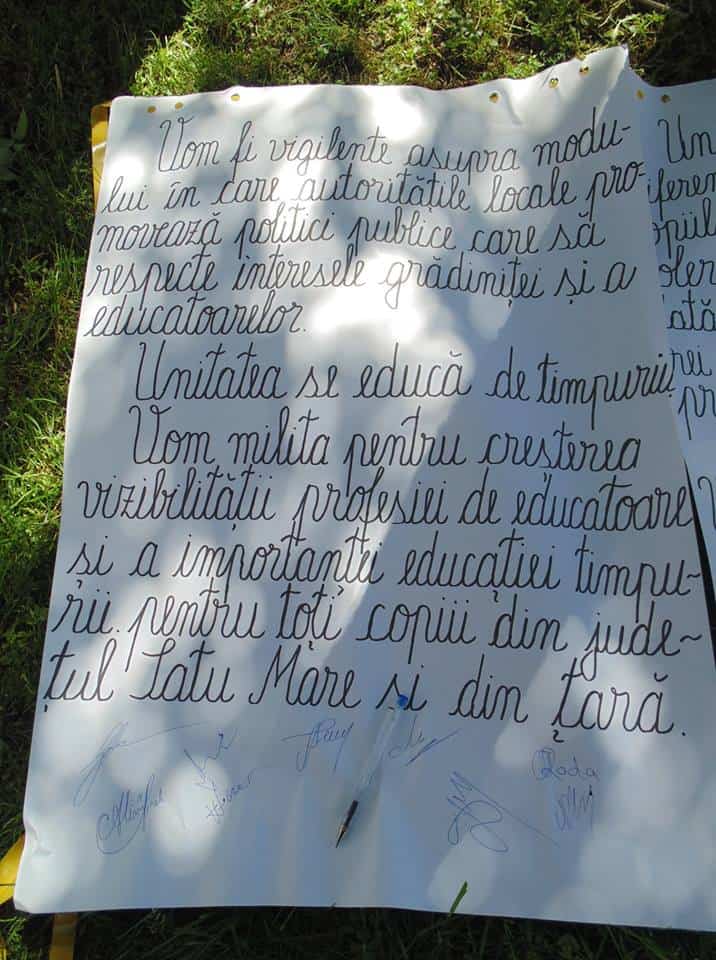 Vom fi vigilente asupra modu-
lui în care autoritățile locale pro-
movează politici publice care să
respecte interesele grădiniței și a
educatoarelor.
Unitatea se educă de timpuriu!
Vom milita pentru creșterea
vizibilității profesiei de educatoare
și a importanței educației timpu-
rii pentru toți copiii din jude-
țul Satu Mare și din țară.
Un
iferen
opiil
oler
ată
rei
pr